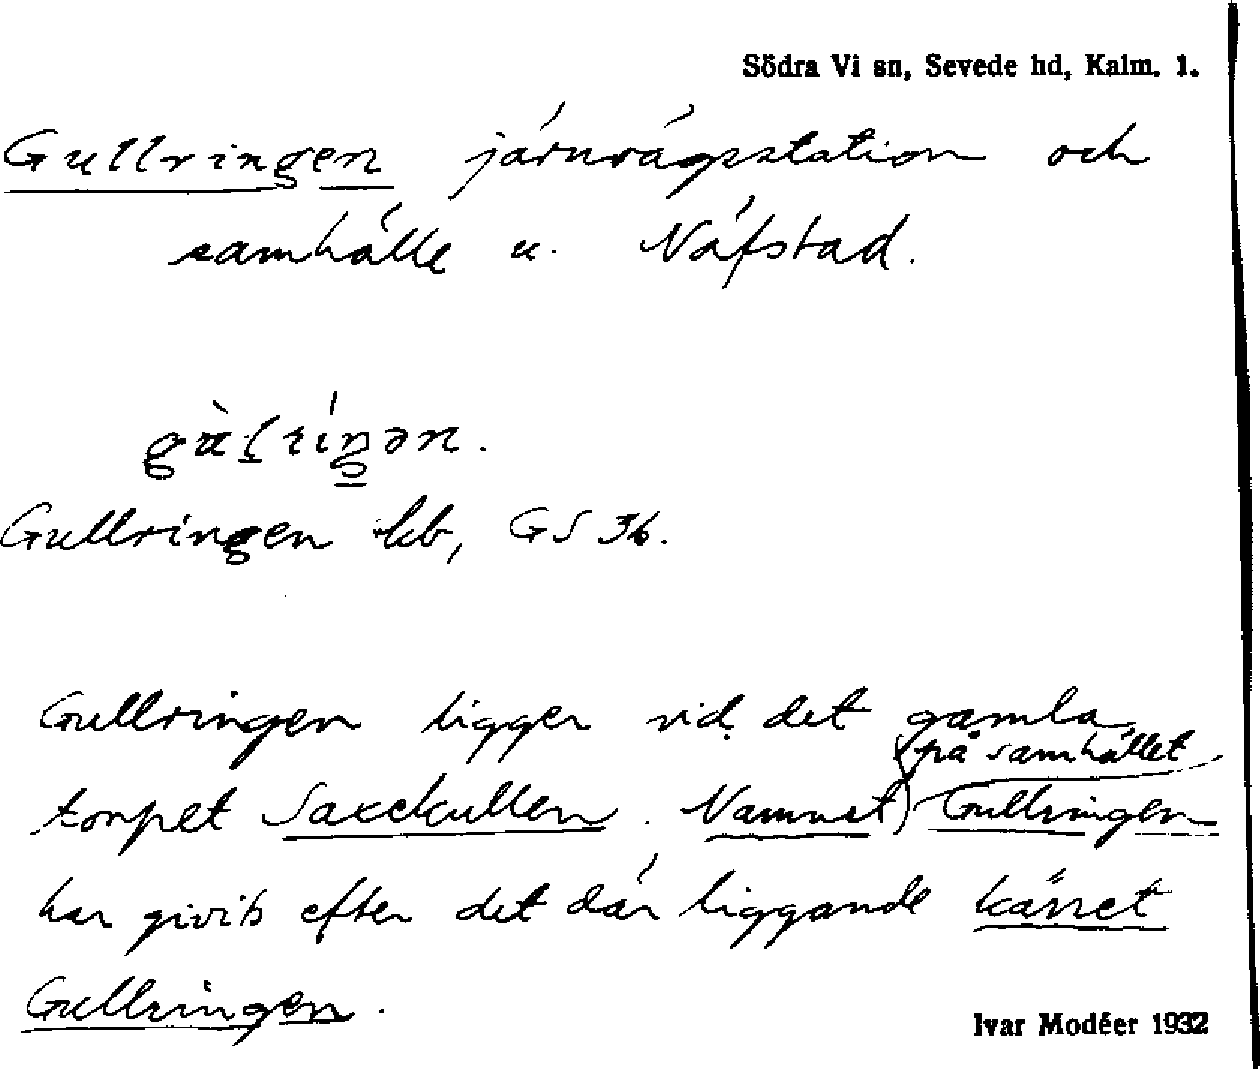 Södra Vi sn, Sevede hd, Kalm. l.
Gullringen järnvägsstation och
samhälle u. Näfstad.
Gullringen kb, GS 36.
Gullringen ligger vid det gamla
på samhället
torpet Saxekullen. Namnet Gullringen
har givits efter det där liggande kärret
Gullringen.
Ivar Modéer 1932